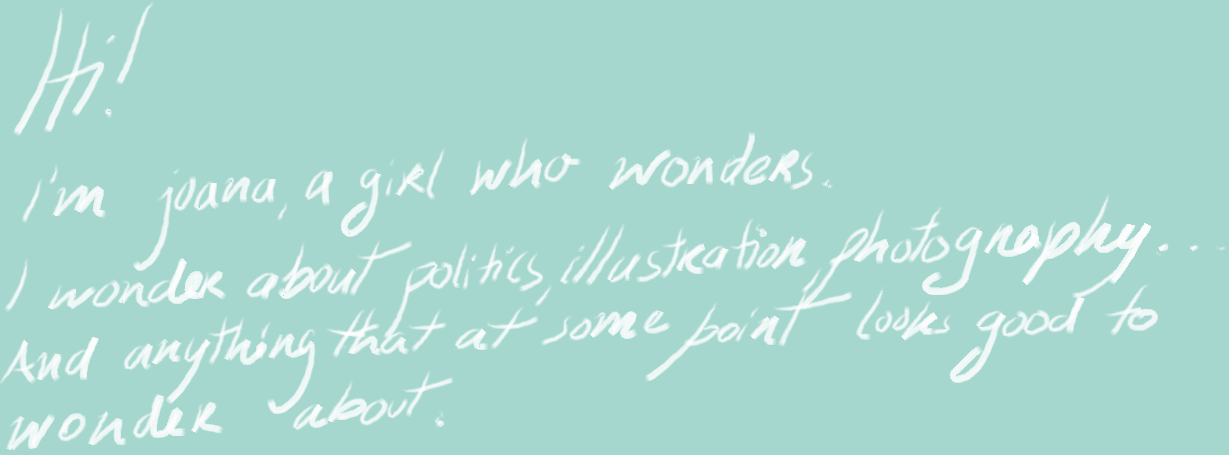 Hi!
I'm joana, a girl who wonders.
I wonder about politics, illustration, photography...
And anything that at some point looks good to
wonder about.